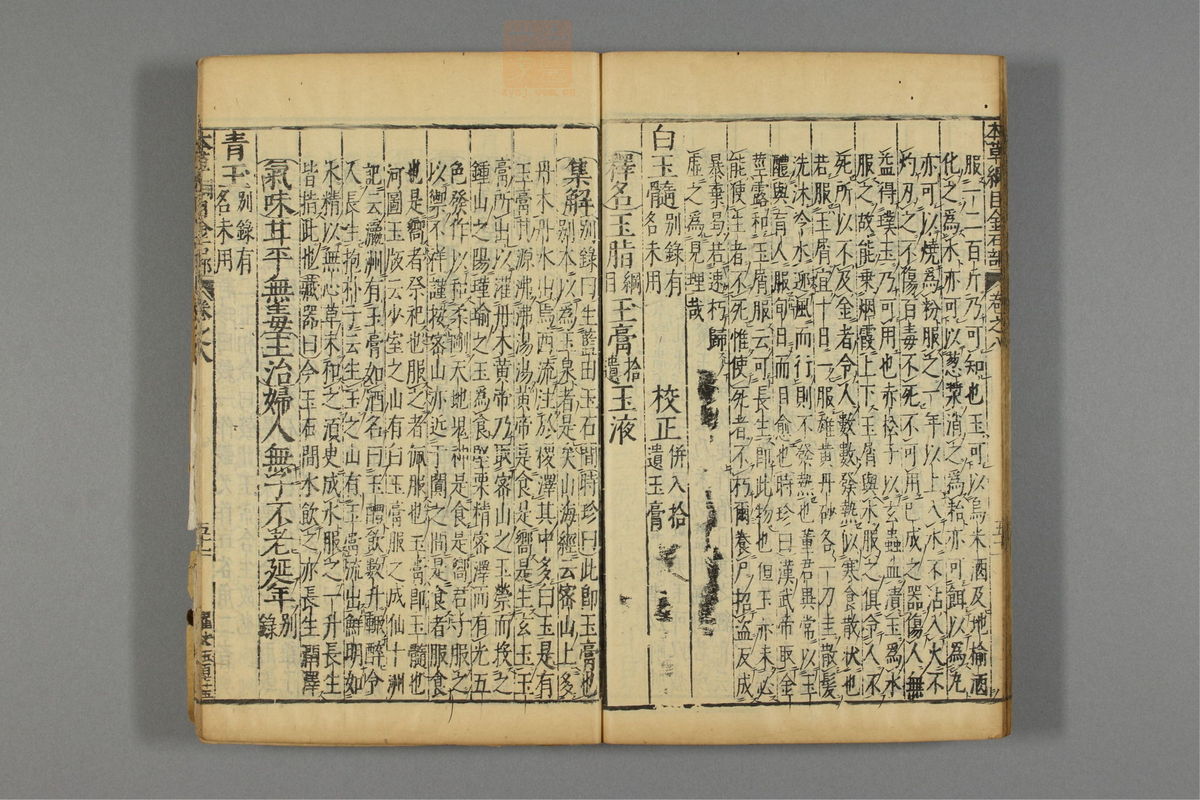 本草綱目金石部 卷之八 五十
服一二百斤乃可知也玉可以烏米酒及地榆酒
化之爲水亦可以葱漿消之爲粭亦可餌以爲丸
亦可以燒爲粉服之一年以上入水不沾入火不
灼刃之不傷百毒不死不可用已成之器傷人無
益得璞玉乃可用也赤松子以玄蟲血漬玉爲水
服之故能乗烟霞上下玉屑與水服之俱令人不
死所以不及金者令人數數發熱似寒食散狀也
若服玉屑宜十日一服雄黄丹砂各一刀圭散髮
洗沐冷水迎風而行則不發熱也董君異常以玉
醴與盲人服旬日而目愈也時珍曰漢武帝取金
莖露和玉屑服云可長生即此物也但玉亦未必
能使生者不死惟使死者不朽爾養尸招盗反成
暴棄曷若速朽歸
虚之爲見理哉
白玉髓别錄有名未用 校正併入拾遺玉膏
釋名玉脂綱目玉膏拾遺玉液
集解别錄曰生藍田玉石間時珍曰此即玉膏也
别本以爲玉泉者是矣山海經云密山上多
丹木丹水出焉西流注於稷澤其中多白玉是有
玉膏其源沸沸湯湯黄帝是食是嚮是生玄玉玉
膏所出以灌丹木黄帝乃取密山之玉禜而投之
鍾山之陽瑾瑜之玉爲食堅栗精密澤而有光五
色發作以和柔剛天地鬼神是食是嚮君子服之
以禦不祥謹按密山亦近于闐之間是食者服食
也是嚮者祭祀也服之者佩服也玉膏即玉髓也
河圖玉版云少室之山有白玉膏服之成仙十洲
記云瀛洲有玉膏如酒名曰玉醴飲數升輙醉令
人長生抱朴子云生玉之山有玉膏流出鮮明如
水精以無心草末和之須臾成水服之一升長生
皆指此也藏器曰今玉石間水飲之亦長生潤澤
氣味甘平無毒主治婦人無子不老延年别錄
青玉别錄有名未用
卷之八